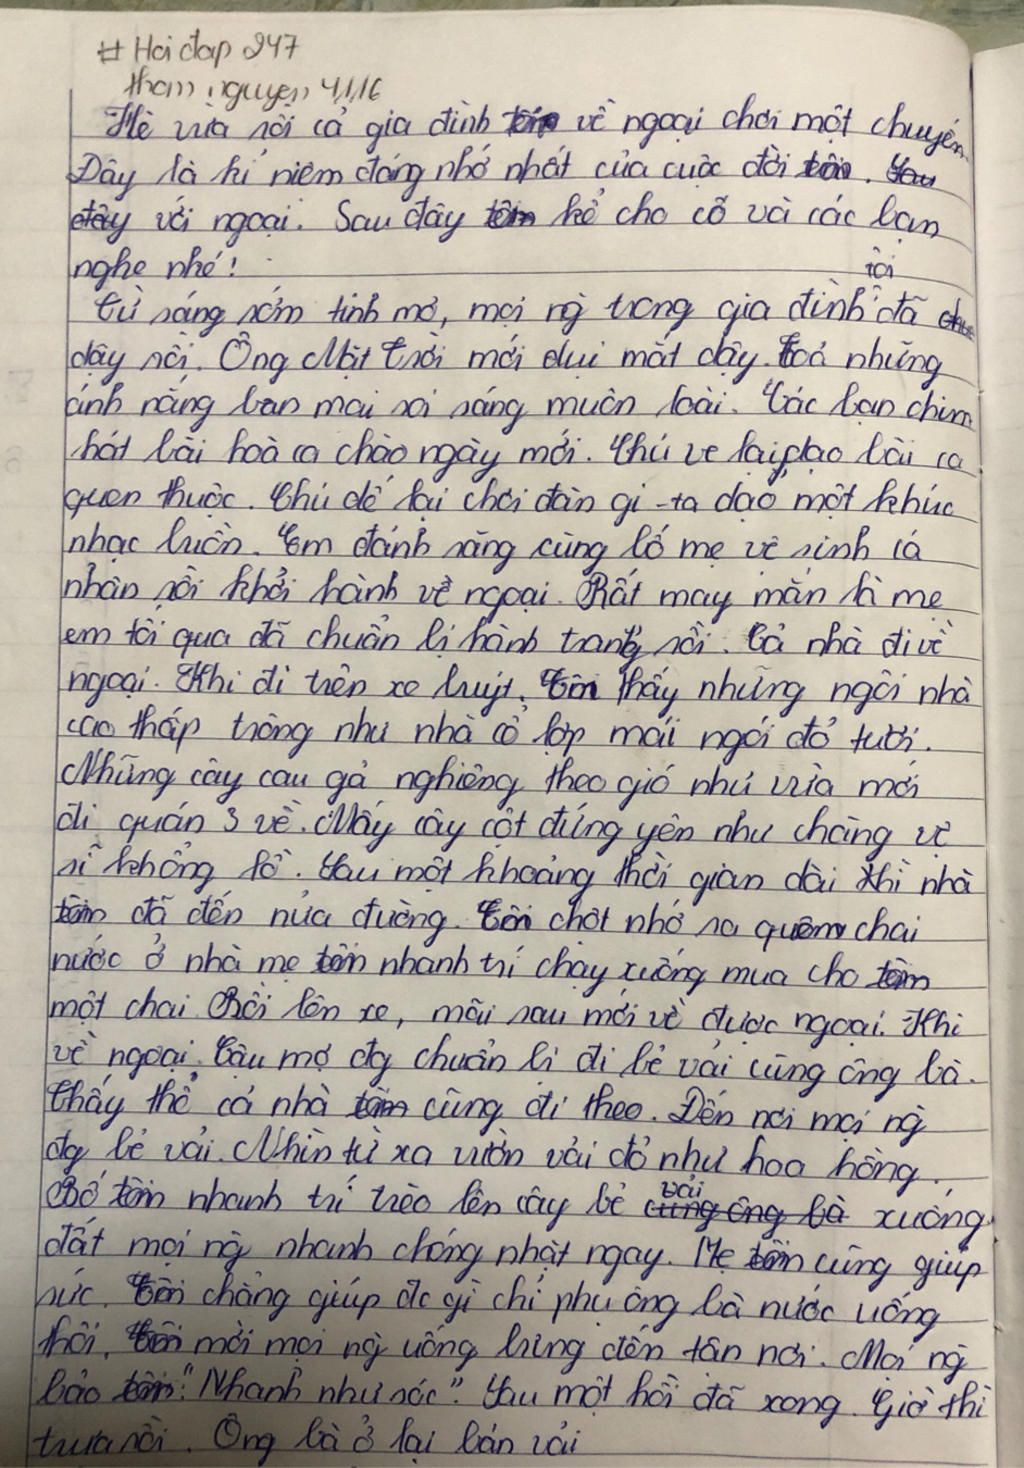 # Hoidap 247
tham nguyen 4116
Hè vừa rồi cả gia đình tôi về ngoại chơi một chuyến.
Đây là kỉ niệm đáng nhớ nhất của cuộc đời tôi. Sau
đây với ngoại. Sau đây tôi kể cho cô và các bạn
nghe nhé!
tôi
Từ sáng sớm tinh mơ, mọi ng` trong gia đình đã
dậy rồi. Ông Mặt Trời mới dụi mắt dậy. Toả những
ánh nắng ban mai soi sáng muôn loài. Các bạn chim
hát bài hoà ca chào ngày mới. Chú ve lại dạo bài ca
quen thuộc. Chú dế lại chơi đàn gi-ta dạo một khúc
nhạc buồn. Em đánh răng cùng bố mẹ vệ sinh cá
nhân rồi khởi hành về ngoại. Rất may mắn là mẹ
em tối qua đã chuẩn bị hành trang rồi. Cả nhà đi về
ngoại. Khi đi trên xe buýt, tôi thấy những ngôi nhà
cao thấp trông như nhà cổ lợp mái ngói đỏ tươi.
Những cây cau gả nghiêng theo gió như vừa mới
đi quán 3 về. Mấy cây cột đứng yên như chàng vệ
sĩ khổng lồ. Sau một khoảng thời gian dài thì nhà
tôi đã đến nửa đường. Tôi chợt nhớ ra quên chai
nước ở nhà mẹ tôi nhanh trí chạy xuống mua cho tôi
một chai. Rồi lên xe, mãi sau mới về được ngoại. Khi
về ngoại, Cậu mợ đg chuẩn bị đi bẻ vải cùng ông bà.
Thấy thế, cả nhà tôi cũng đi theo. Đến nơi mọi ng`
đg bẻ vải. Nhìn từ xa vườn vải đỏ như hoa hồng.
Bố tôi nhanh trí trèo lên cây bẻ vải cùng ông bà xuống
đất mọi ng` nhanh chóng nhặt ngay. Mẹ tôi cũng giúp
sức. Tôi chẳng giúp đc gì chỉ phụ ông bà nước uống
thôi. Tôi mời mọi ng` uống bưng đến tận nơi. Mọi ng`
bảo tôi: "Nhanh như sóc". Sau một hồi đã xong. Giờ thì
trưa rồi. Ông bà ở lại bán vải